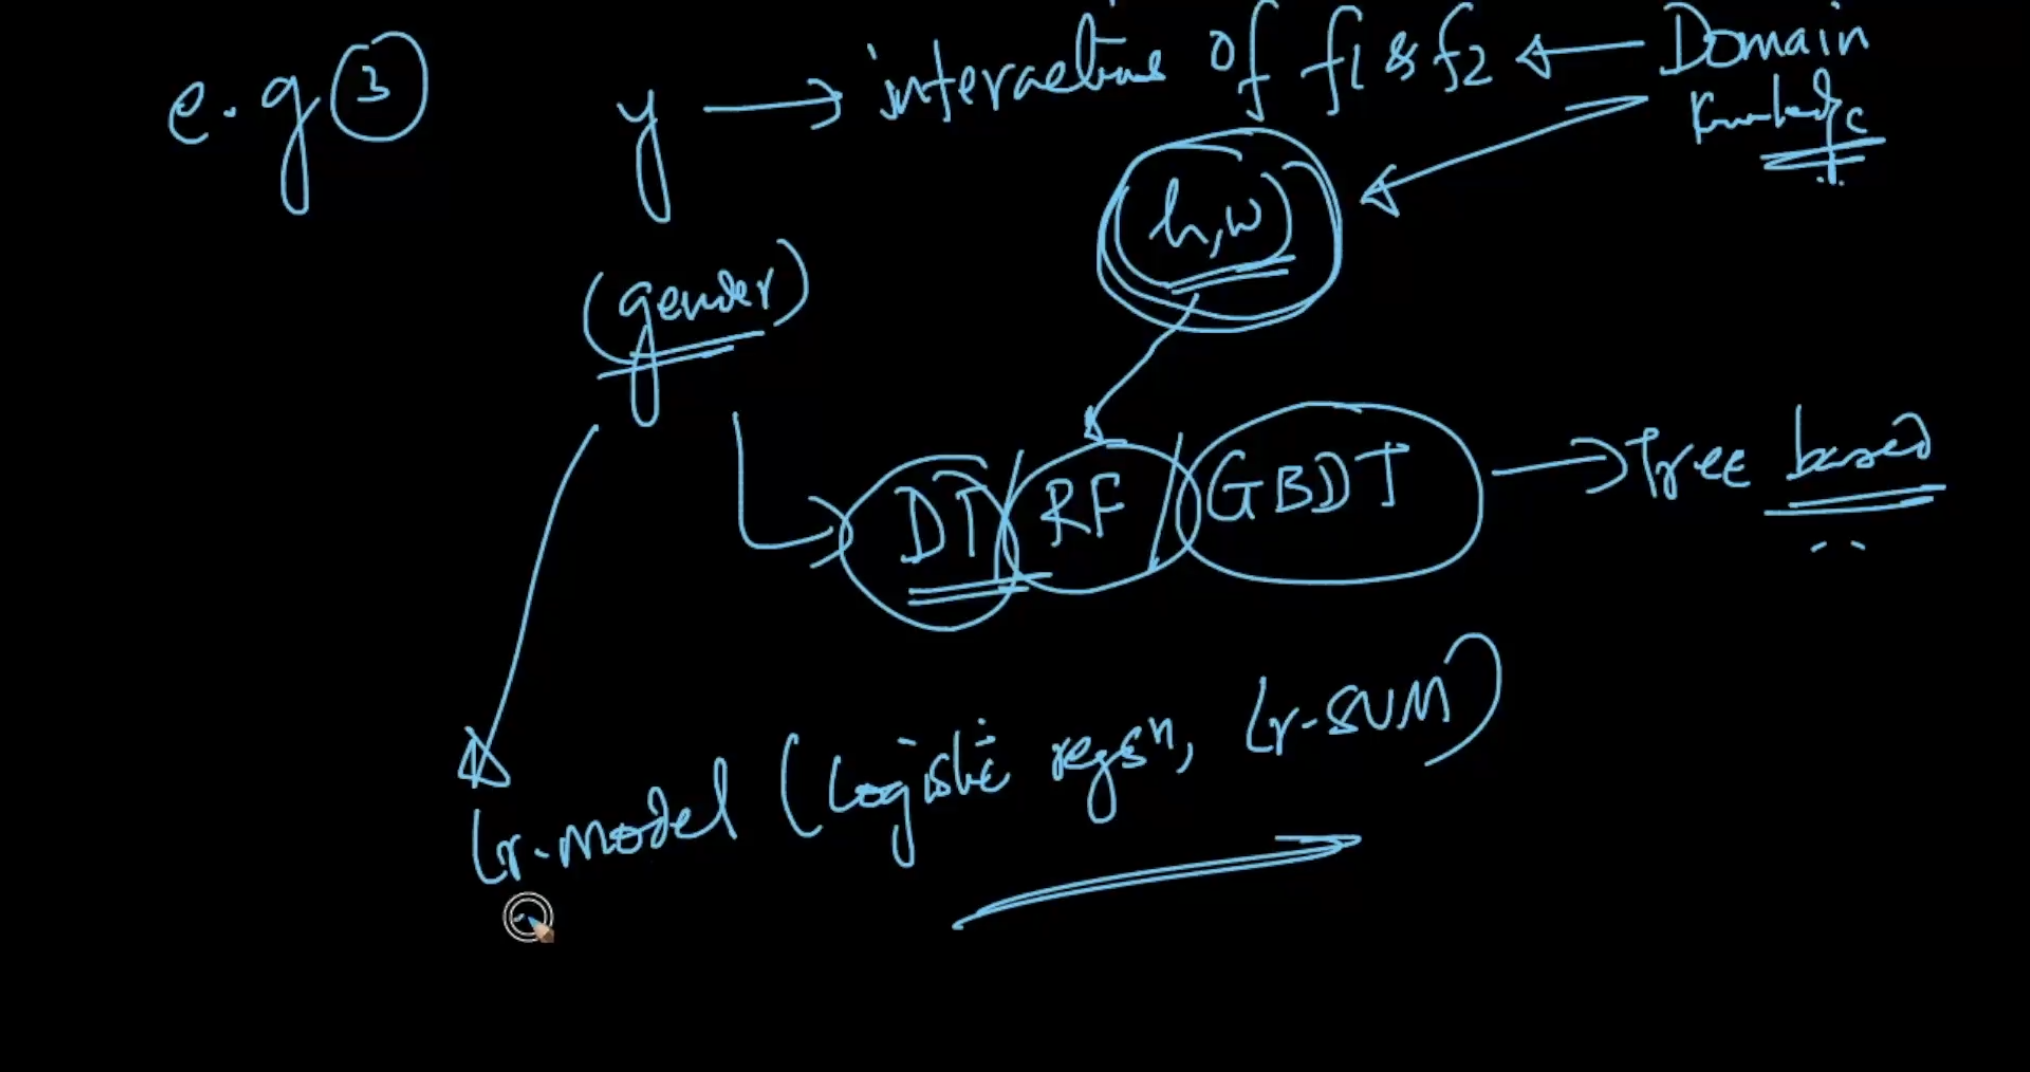 e.g 3 y → interactions of f1 & f2 ← Domain
Knowledge
(h,w)
(gender)
DT/RF/GBDT → Tree based
Lr-model (Logistic regsn, Lr-SVM)